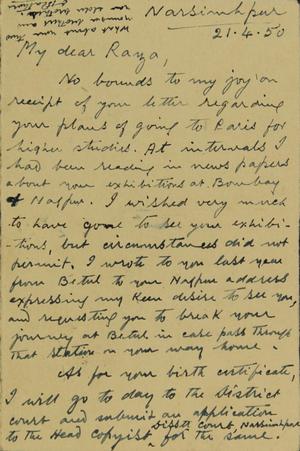 Narsimhpur
21.4.50
My dear Raza,
No bounds to my joy on
receipt of your letter regarding
your plans of going to Paris for
higher studies. At intervals I
had been reading in news papers
about your exhibitions at Bombay
& Nagpur. I wished very much
to have gone to see your exhibi-
-tions, but circumstances did not
permit. I wrote to you last year
from Betul to your Nagpur address
expressing my keen desire to see you,
and requesting you to break your
journey at Betul in case pass through
that station on your way home.
As for your birth certificate,
I will go to day to the District
court and submit an application
to the Head Copyist, Distt Court, Narsimhpur
for the same.
What about your two
brothers